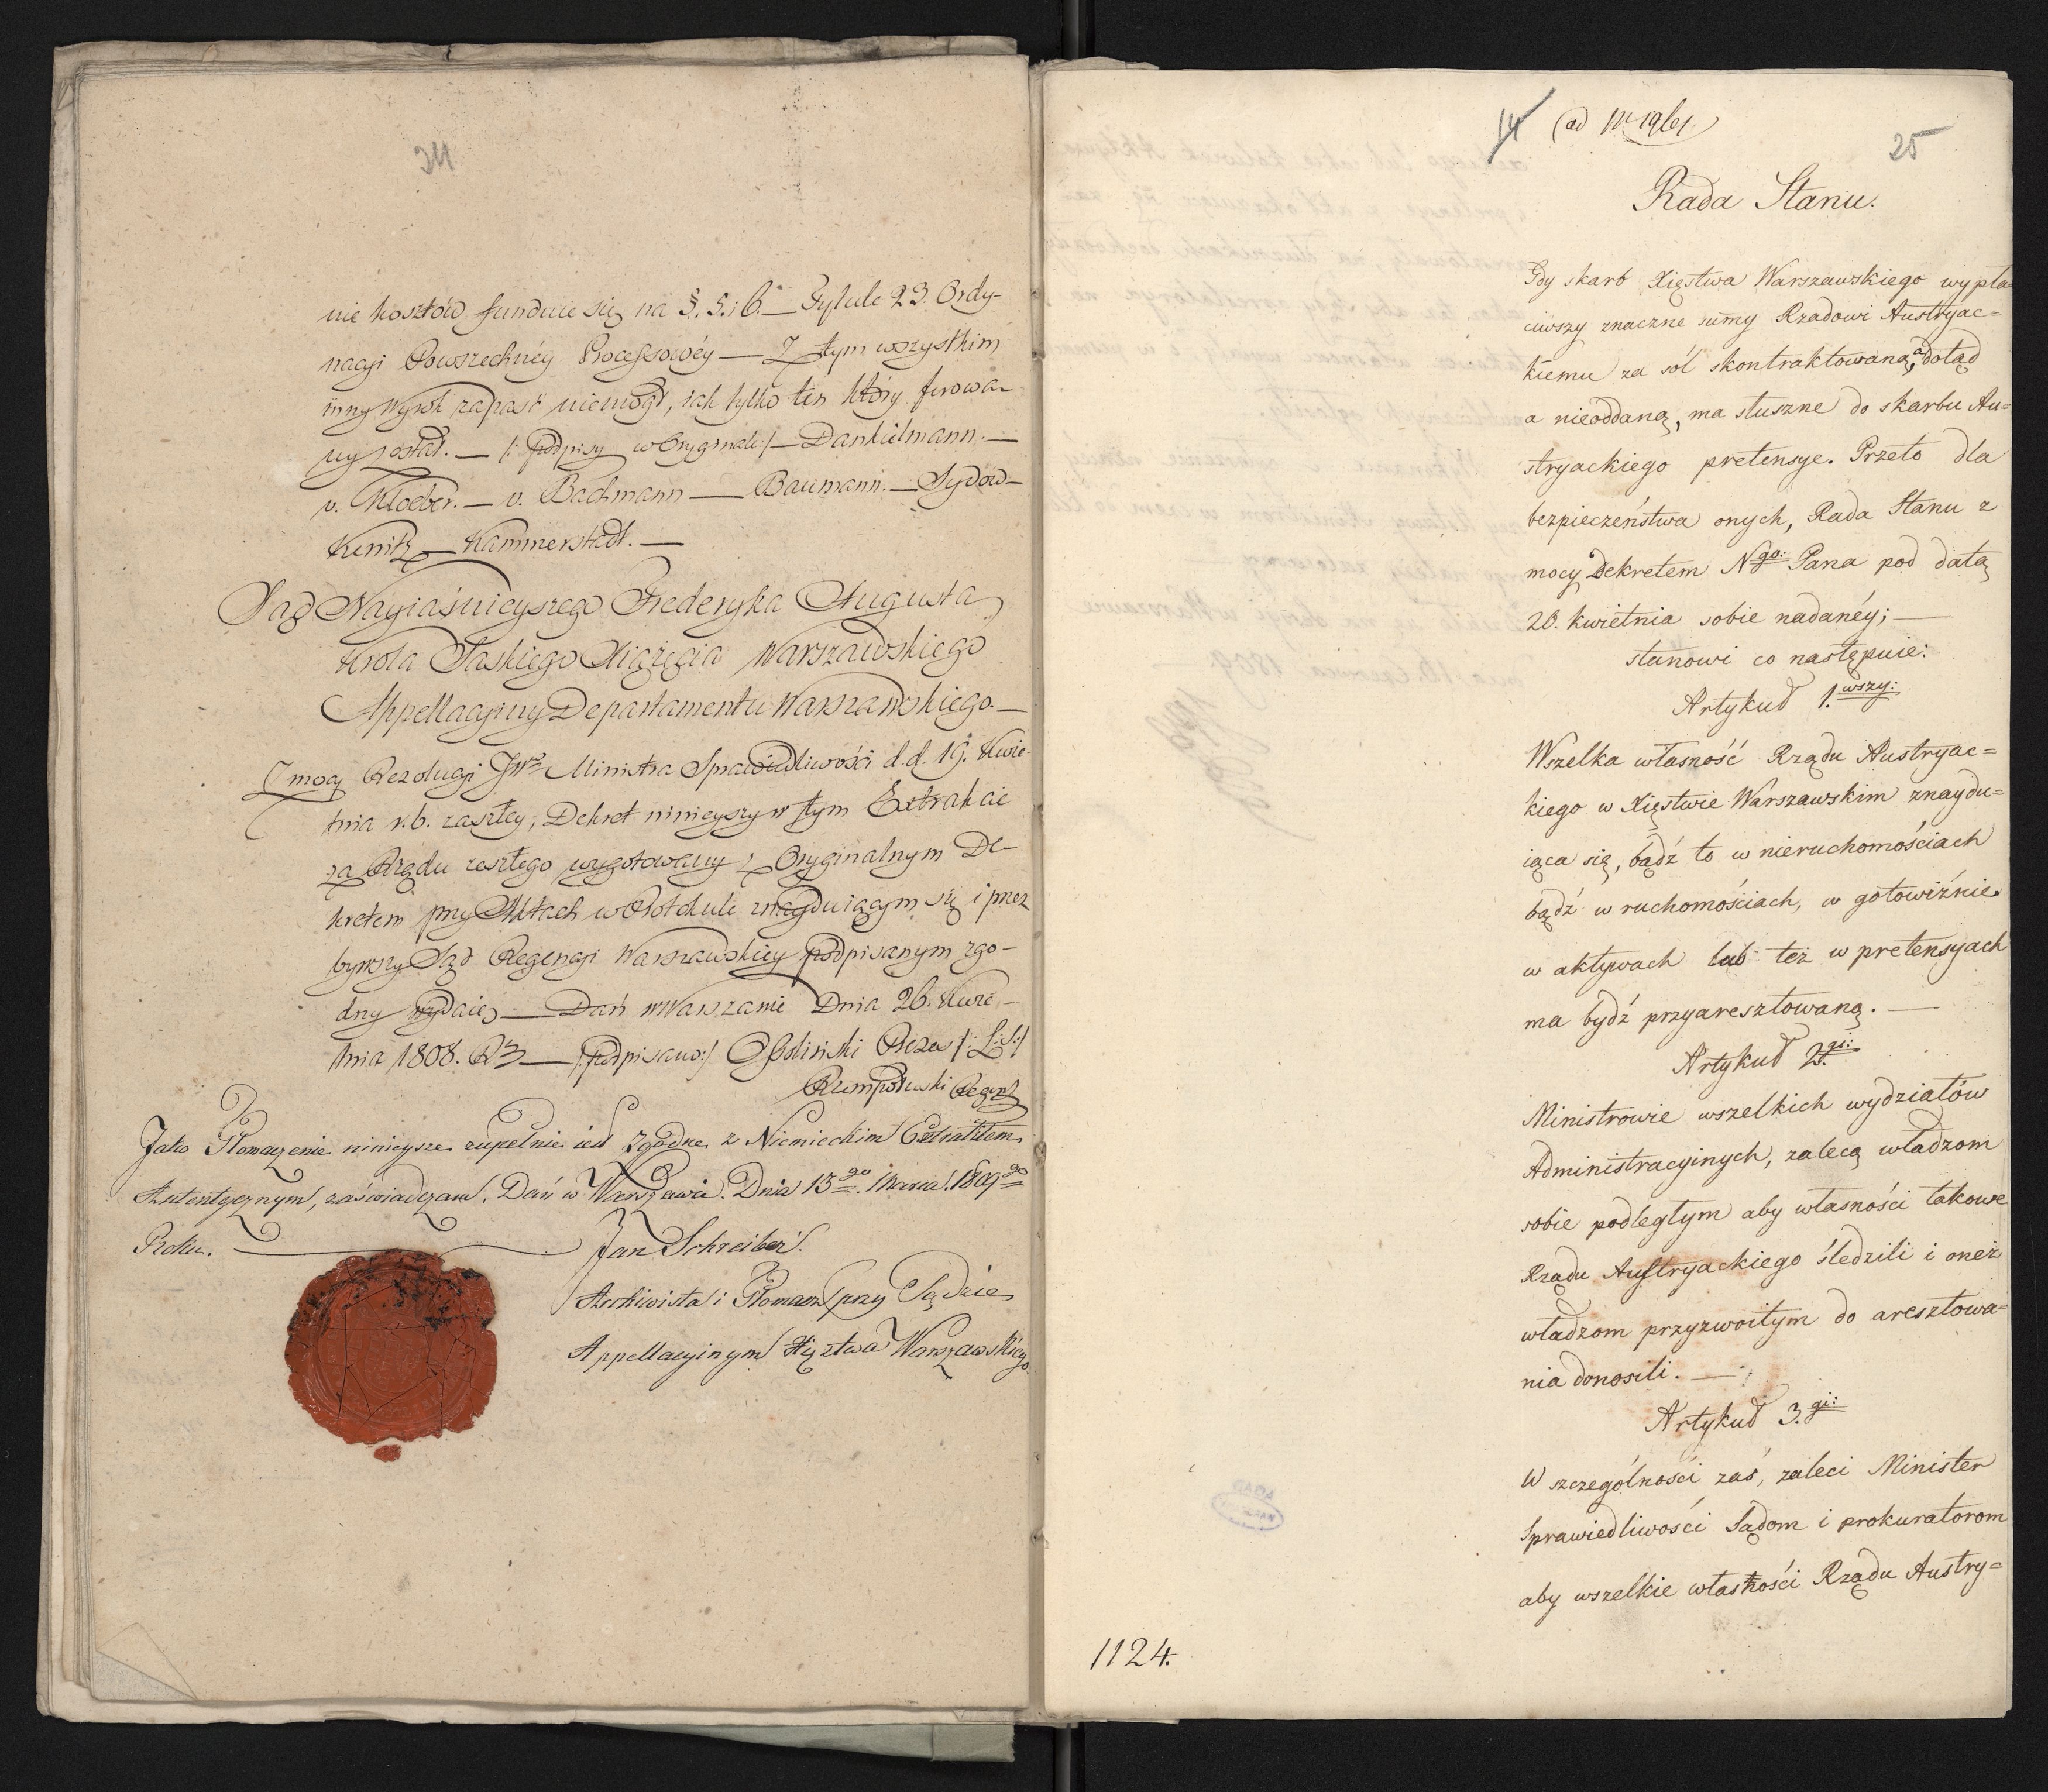 24
nie kosztów funduie się na §. 5. i 6. — Tytule 23. Ordy-
nacyi Powszechnéy Processowéy — Z tym wszystkim
inny Wyrok zapaść niemógł, iak tylko ten który ferowa-
ny został. — /: podpisy w Oryginale :/ — Dankelmann. —
v. Kloeber. — v. Bachmann — Baumann. — Sydow —
Kenitz — Kammerstadt. —
Sąd Nayiaśnieyszego Frederyka Augusta
Króla Saskiego Xiążęcia Warszawskiego
Appellacyiny Departamentu Warszawskiego. —
Z mocy Rezolucyi JWo Ministra Sprawiedliwości d. d. 19. Kwie-
tnia r. b. zaszłey, Dekret ninieyszy w tym Extrakcie
za Rządu zeszłego wygotowany z Oryginalnym De-
kretem przy Aktach w Protokule znayduiącym się i przez
bywszy Sąd Regencyi Warszawskiey podpisanym zgo-
dny wydaie — Dań w Warszawie Dnia 26. Kwie-
tnia 1808. R. — /: podpisano :/ Ossoliński Prezes /: L: S: /
Rempołowski Regent
Jako Tłomaczenie ninieysze zupełnie iest zgodne z Niemieckim Extraktem
Autentycznym, zaświadczam. Dań w Warszawie. Dnia 13go Marca. 1809go
Roku. — Jan Schreiber.
Archiwista i Tłomacz przy Sądzie
Appellacyinym Xięztwa Warszawskiego.
14 (ad Nr 1961)
25
Rada Stanu.
Gdy skarb Xięstwa Warszawskiego wypła-
ciwszy znaczne sumy Rządowi Austryac=
kiemu za sól skontraktowaną, a dotąd
a nieoddaną, ma słuszne do skarbu Au=
stryackiego pretensye. Przeto dla
bezpieczeństwa onych, Rada Stanu z
mocy Dekretem Ngo: Pana pod datą
20. kwietnia sobie nadanéy; —
stanowi co następuie:
Artykuł 1.wszy:
Wszelka własność Rządu Austryac=
kiego w Xięstwie Warszawskim znaydu=
iąca się, bądź to w nieruchomościach
bądź w ruchomościach, w gotowiźnie
w aktywach lub też w pretensyach
ma bydź przyaresztowaną. —
Artykuł 2.gi:
Ministrowie wszelkich wydziałów
Administracyinych, zalecą władzom
sobie podległym aby własności takowe
Rządu Austryackiego śledzili i oneż
władzom przyzwoitym do aresztowa=
nia donosili. —
Artykuł 3.gi:
W szczególności zaś, zaleci Minister
Sprawiedliwości Sądom i prokuratorom
aby wszelkie własności Rządu Austry=
1124.